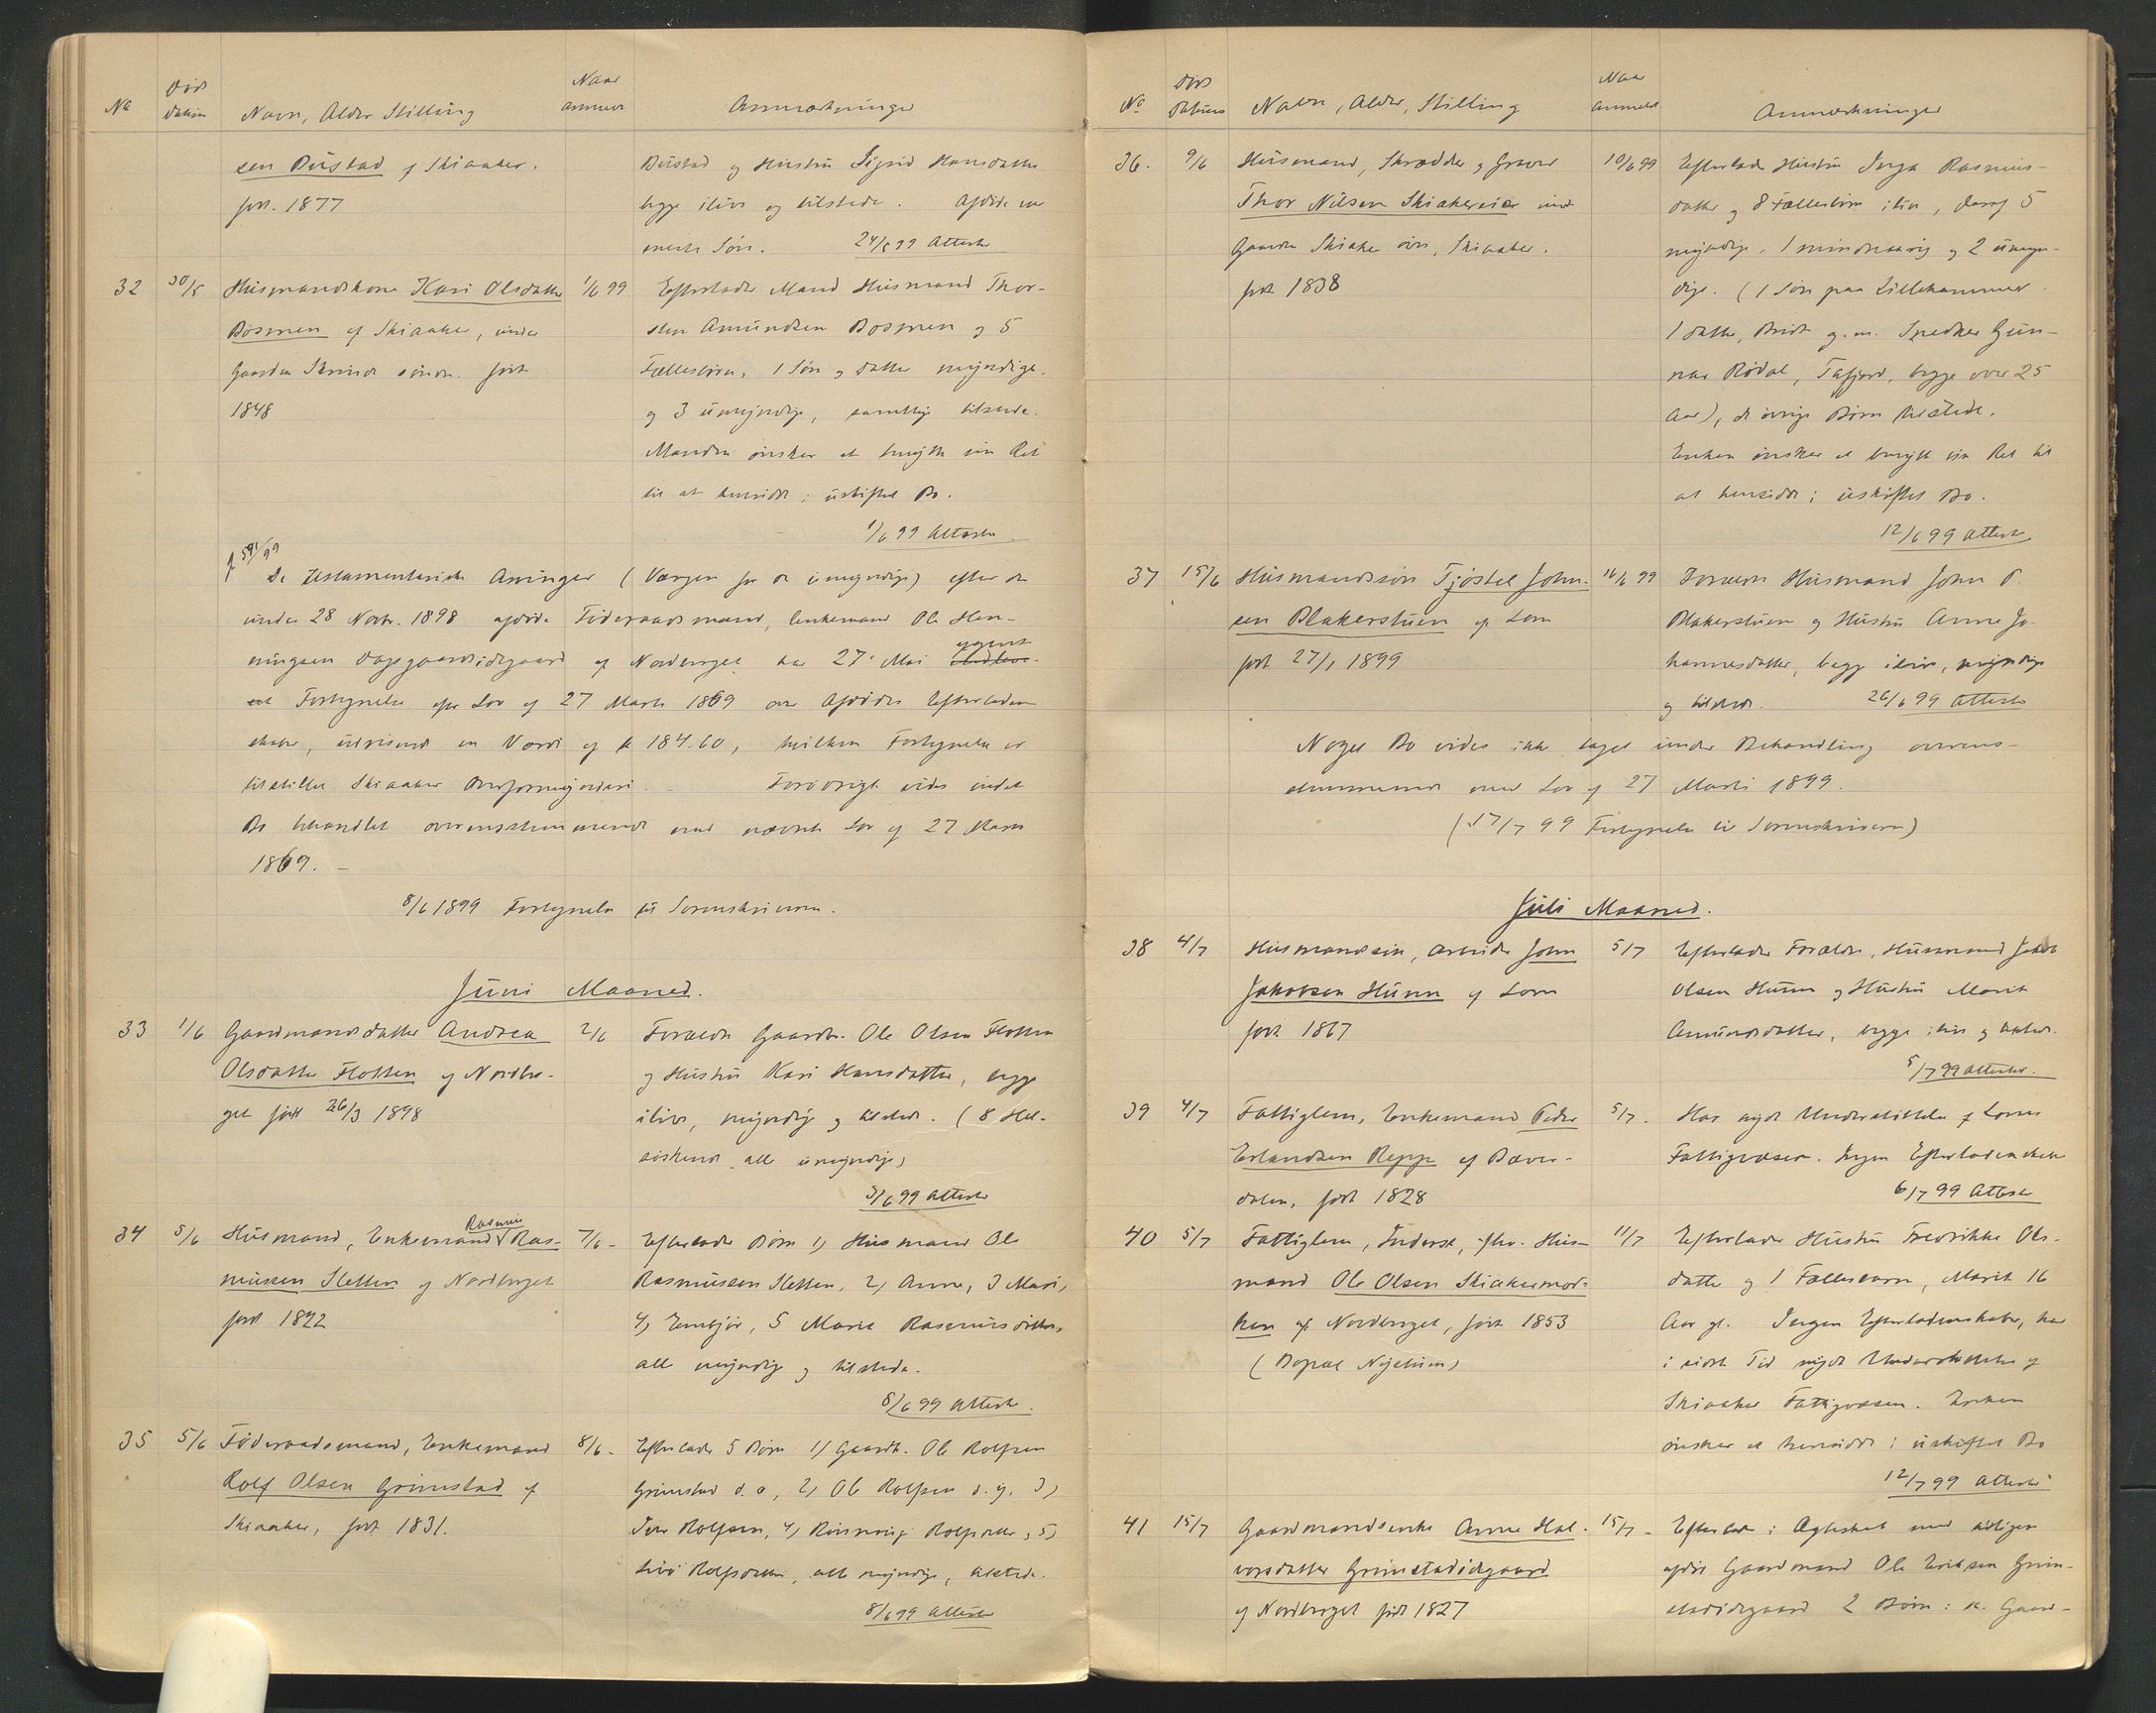 No Død Datum Navn, Alder Stilling Naar anmeldt Anmærkninger
sen Bustad af Skiaaker.
født. 1877
Bustad og Hustru Sigrid Hansdatter
begge ilive og tilstede. Afdøde var
ældste Søn. 24/5 99 Attester
32 30/5 Husmandskone Kari Olsdatter 1/6 99
Bosmen af Skiaaker, under
Gaarden Skrinde søndr. født
1848
Efterlader Mand Husmand Thor-
sten Amundsen Bosmen og 5
Fællesbørn, 1 Søn og Datter myndige,
og 3 umyndige, samtlige tilstede.
Manden ønsker at benytte sin Ret
til at hensidde i uskiftet Bo.
1/6 99 Attester
J 591/99
De testamentariske Arvinger (Værgen for de umyndige) efter den
under 28 Novbr. 1898 afdøde Føderaadsmand, Enkemand Ole Hen-
ningsen Dagsgaardsidegaard af Nordberget har 27' Mai
Fortegnelse efter Lov af 27 Marts 1869 over Afdødes Efterladen-
skaber, udvisende en Værdi af kr 184.60, hvilken Fortegnelse er
tilstillet Skiaaker Overformynderi. Forøvrigt vides intet
Bo behandlet overensstemmende med nævnte Lov af 27 Marts
1869. —
8/6 1899 Fortegnelse til Sorenskriveren.
Juni Maaned.
33 1/6 Gaardmandsdatter Andrea 2/6
Olsdatter Flotten af Nordber-
get født 26/3 1898
Forældre Gaardbr. Ole Olsen Flotten
og Hustru Kari Hansdatter, begge
ilive, myndige og tilstede. (8 Hel-
søskende alle umyndige)
3/6 99 Attester
34 5/6 Husmand, Enkemand Rasmus Ras- 7/6 -
mussen Sletten af Nordberget
født 1822
Efterlader Børn 1) Husmand Ole
Rasmussen Sletten, 2) Anne, 3 Mari,
4) Embjør, 5 Marit Rasmusdøttre,
alle myndige og tilstede.
8/6 99 Attester.
35 5/6 Føderaadsmand, Enkemand 8/6 -
Rolf Olsen Grimstad af
Skiaaker, født 1831.
Efterlader 5 Børn 1) Gaardb. Ole Rolfsen
Grimstad d.æ, 2) Ole Rolfsen d.y. 3)
Iver Rolfsen, 4) Rønnaug Rolfsdatter, 5)
Livi Rolfsdatter, alle myndige, tilstede.
8/6 99 Attester
No Døds Datum Navn, Alder, Stilling Naar Anmeldt Anmærkninger
36. 9/6 Husmand, Skrædder og Graver 10/6 99
Thor Nilsen Skiakereie under
Gaarden Skiaker øvre, Skiaaker.
født 1838
Efterlader Hustru Inga Rasmus-
datter og 8 Fællesbørn ilive, deraf 5
myndige, 1 mindreaarig og 2 umyn-
dige. (1 Søn paa Lillehammer
1 Datter, Brit g.m. Snedker Gun-
nar Rødal, Tafjord, begge over 25
Aar), de øvrige Børn tilstede.
Enken ønsker at benytte sin Ret til
at hensidde i uskiftet Bo.
12/6 99 Attester
37 15/6 Husmandssøn Tjøstel John- 16/6 99
sen Blakerstuen af Lom
født 27/1 1899
Forældre Husmand John P.
Blakerstuen og Hustru Anne Jo-
hannesdatter, begge ilive, myndige
og tilstede. 26/6 99 Attester
Noget Bo vides ikke taget under Behandling overens-
stemmende med Lov af 27 Marts 1899.
(17/7 99 Fortegnelse til Sorenskriveren)
Juli Maaned.
38 4/7 Husmandssøn, Arbeider John 5/7
Jakobsen Hunn af Lom
født 1867
Efterlader Forældre, Husmand Jakob
Olsen Hunn og Hustru Marit
Amundsdatter, begge ilive og tilstede.
5/7 99 Attester.
39 4/7 Fattiglem, Enkemand Peder 5/7.
Erlandsen Repp af Bæver-
dalen, født 1828
Har nydt Understøttelse af Loms
Fattigvæsen. Ingen Efterladenskaber
6/7 99 Attester
40 5/7 Fattiglem, Inderst, fhv. Hus- 11/7
mand Ole Olsen Skiakermor-
ken af Nordberget, født 1853
(Bopæl Nystuen)
Efterlader Hustru Fredrikke Ols-
datter og 1 Fællesbarn, Marit 16
Aar gl. Ingen Efterladenskaber, har
i sidste Tid nydt Understøttelse af
Skiaaker Fattigvæsen. Enken
ønsker at hensidde i uskiftet Bo
12/7 99 Attester
41 15/7 Gaardmandsenke Anne Hal- 15/7 -
vorsdatter Grimstadidegaard
af Nordberget født 1827
Efterlader i Ægteskab med tidligere
afdøde Gaardmand Ole Eriksen Grim-
stadidegaard 2 Børn: a. Gaard-